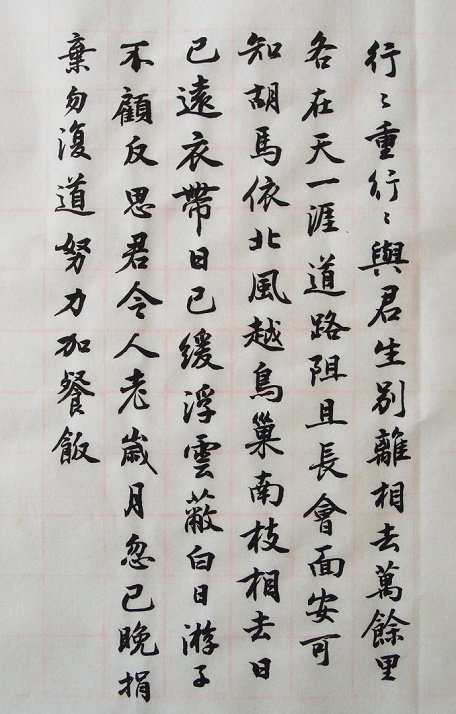 行〻重行〻與君生别離相去萬餘里
各在天一涯道路阻且長會面安可
知胡馬依北風越鳥巢南枝相去日
已遠衣帶日已緩浮雲蔽白日游子
不顧反思君令人老歲月忽已晚捐
棄勿復道努力加餐飯